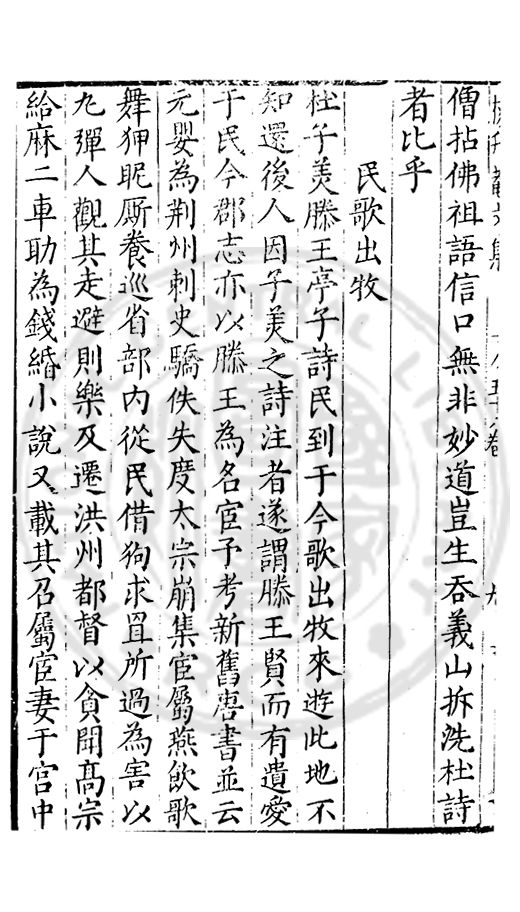 僧拈佛祖語信口無非妙道豈生吞義山拆洗杜詩
者比乎
民歌出牧
杜子美滕王亭子詩民到于今歌出牧來遊此地不
知還後人因子美之詩注者遂謂滕王賢而有遺愛
于民今郡志亦以滕王為名宦予考新舊唐書並云
元嬰為荆州刺史驕佚失度太宗崩集宦屬燕飲歌
舞狎昵厮養巡省部内從民借狗求罝所過為害以
丸彈人觀其走避則樂及遷洪州都督以貪聞髙宗
給麻二車助為錢緡小說又載其召屬宦妻于宫中